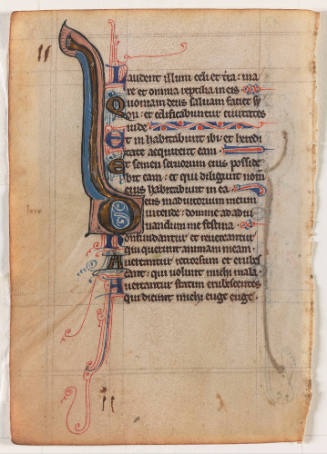 Laudent illum celi et tr̄a: ma
re et omnia reptilia in eis
Quoniam deus saluam faciet sy
on: et edificabuntur ciuitates
iude
Et in habitabunt ibi: et heredi
tate acquirent eam
Et semen seruorum eius posside
bit eam: et qui diligunt nom̄
eius habitabunt in ea
Deus in adiutorium meum
intende: domine ad adiu
uandum me festina
Confundantur et reuereantur:
qui querunt animam meam
Auertantur retrorsum et erubes
cant: qui uolunt michi mala
Auertantur statim erubescentes
qui dicunt michi euge euge